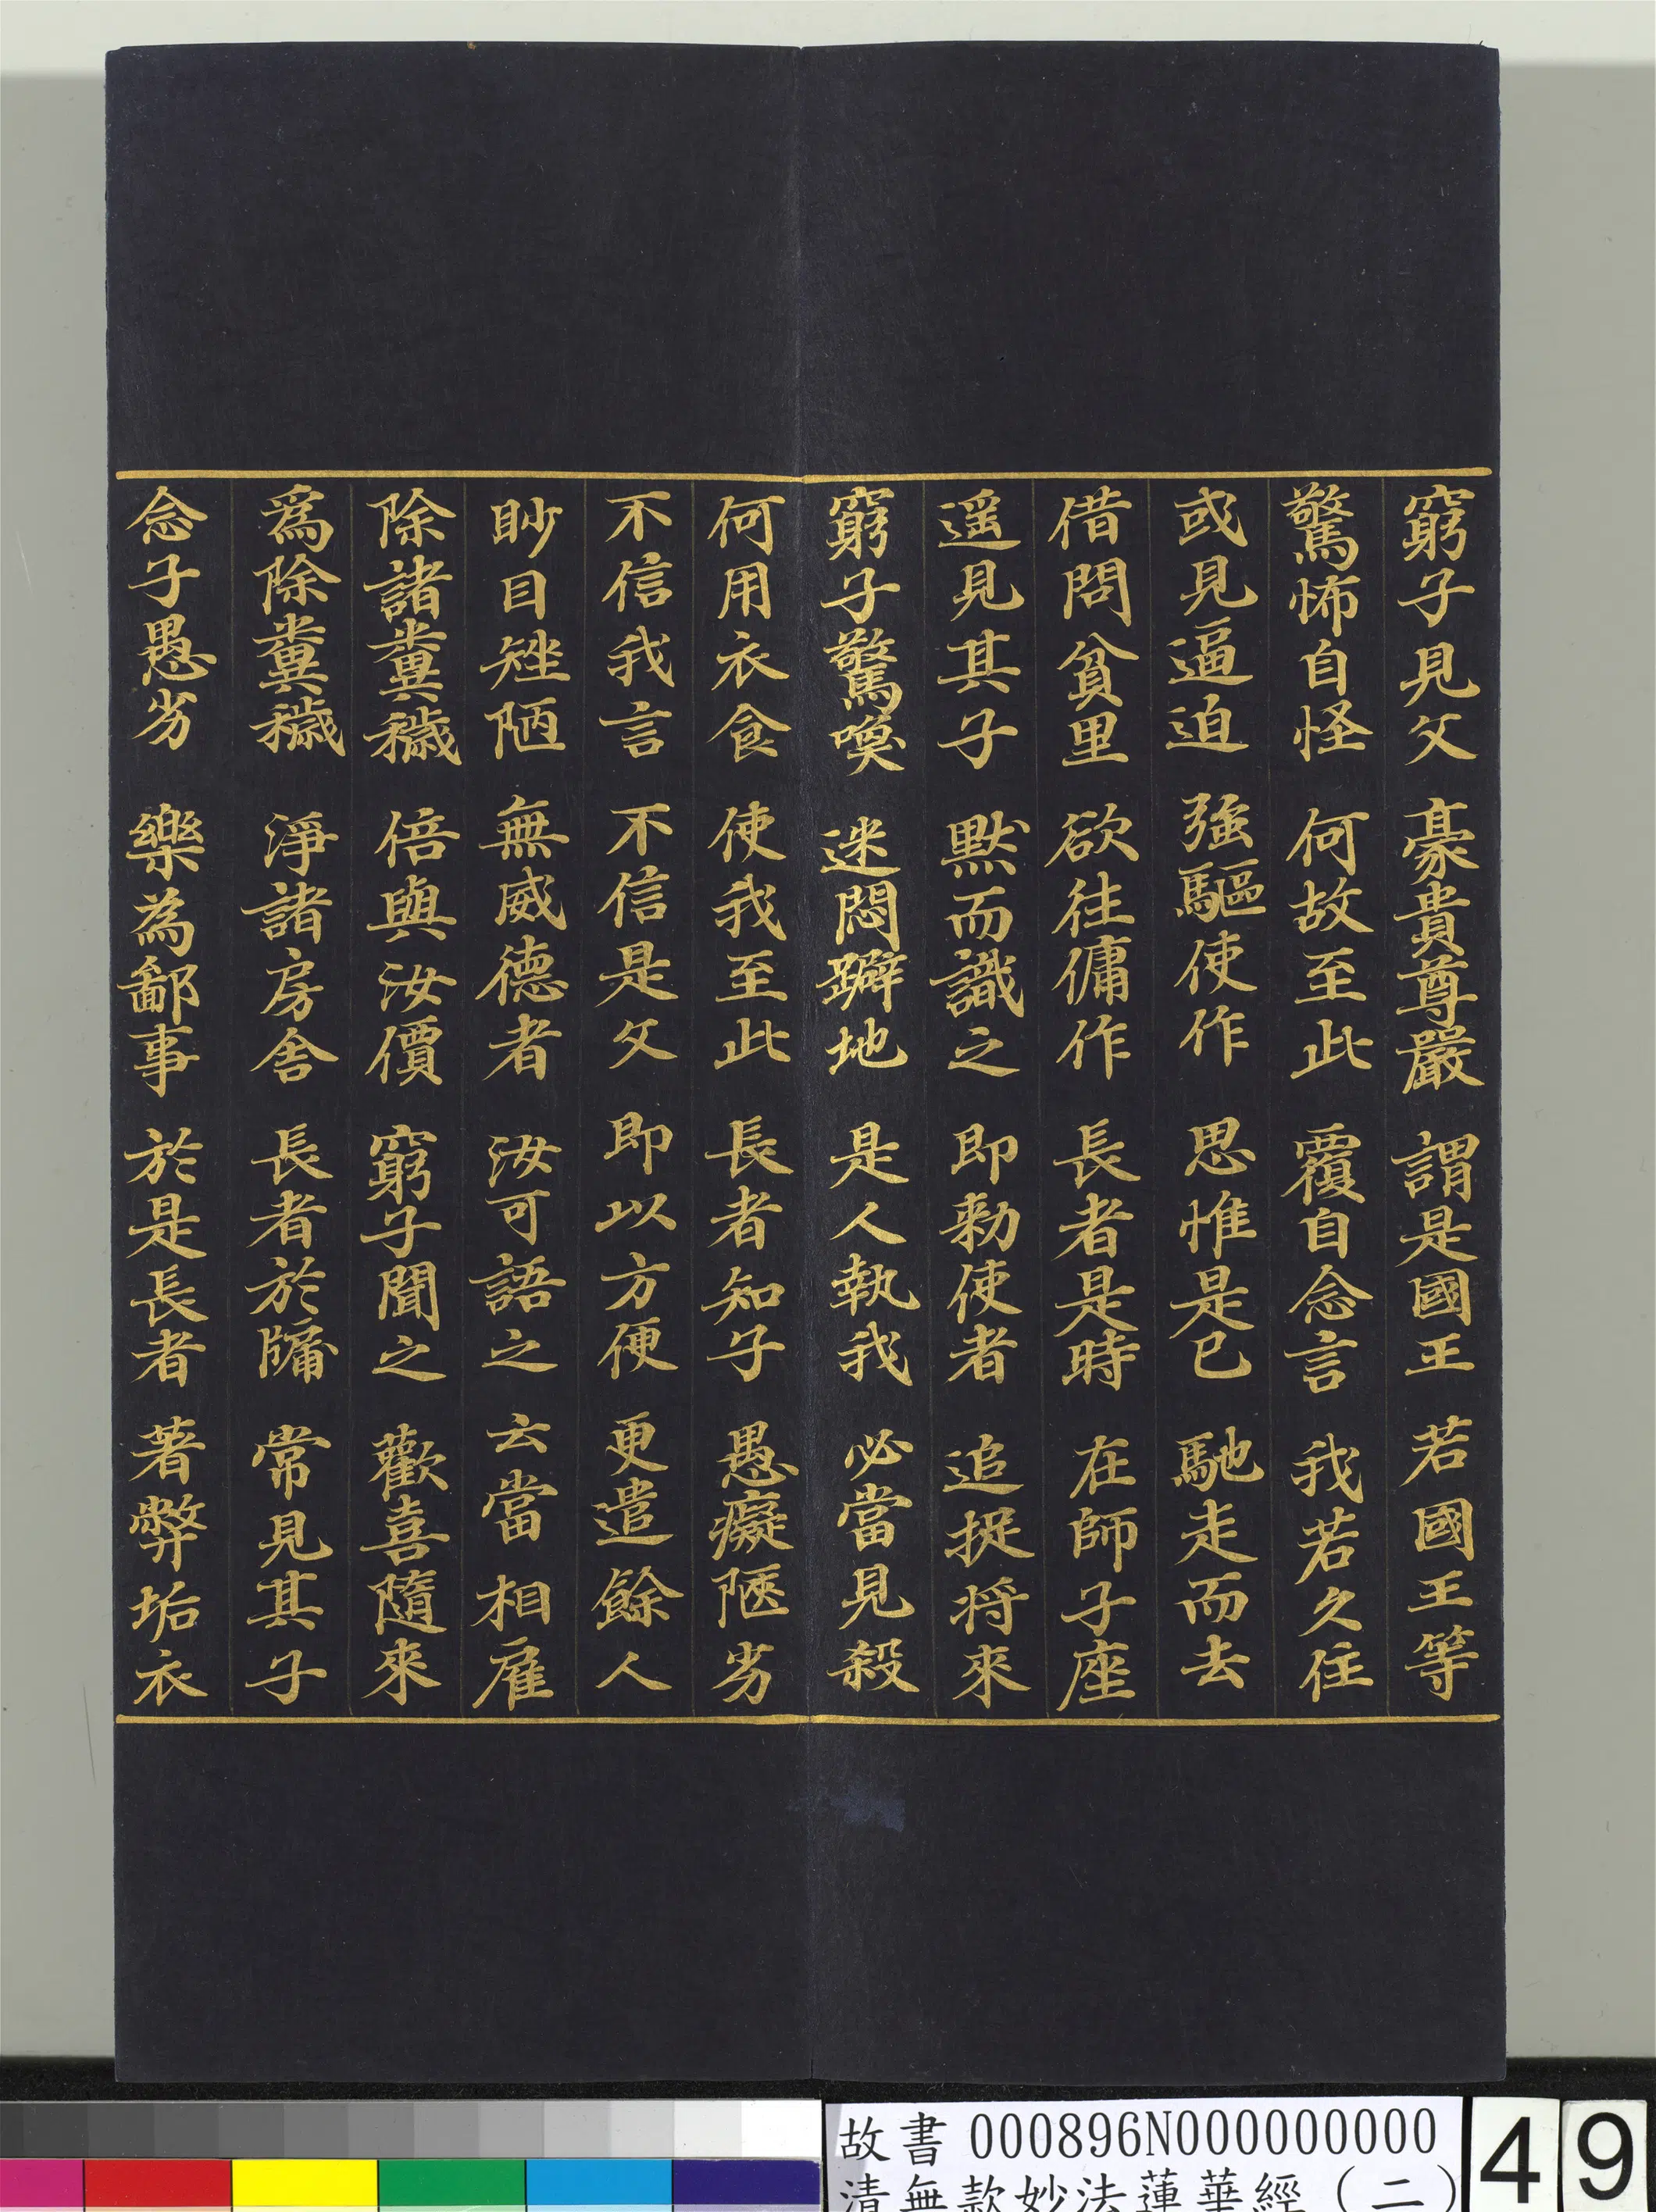 窮子見父　豪貴尊嚴　謂是國王　若國王等
驚怖自怪　何故至此　覆自念言　我若久住
或見逼迫　強驅使作　思惟是已　馳走而去
借問貧里　欲往傭作　長者是時　在師子座
遥見其子　黙而識之　即勑使者　追捉将來
窮子驚喚　迷悶躃地　是人執我　必當見殺
何用衣食　使我至此　長者知子　愚癡陿劣
不信我言　不信是父　即以方便　更遣餘人
眇目矬陋　無威德者　汝可語之　云當相雇
除諸糞穢　倍與汝價　窮子聞之　歡喜隨來
爲除糞穢　淨諸房舍　長者於牖　常見其子
念子愚劣　樂為鄙事　於是長者　著弊垢衣
故書 000896N000000000
清無款妙法蓮華經（二）
49